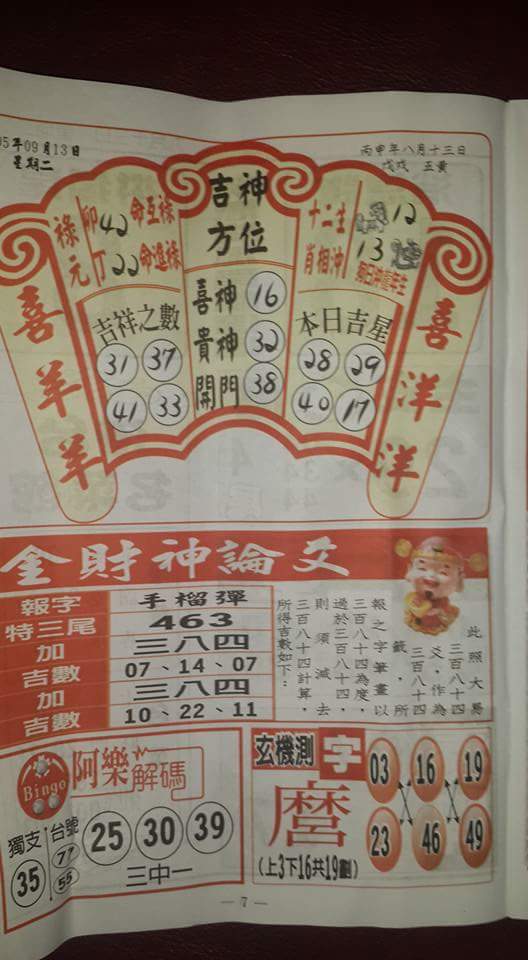 05年09月13日
星期二
丙申年八月十三日
戊戌 五黃
喜羊羊
祿元
卯42命互祿
丁22命進祿
吉祥之數
31 37
41 33
吉神
方位
喜神 16
貴神 32
開門 38
十二生 12
肖相沖 13
本日吉星
28 29
40 17
喜洋洋
金財神論爻
報字 手榴彈
特三尾 463
加 三八四
吉數 07、14、07
加 三八四
吉數 10、22、11
此照大易
三百八十四
爻，作為
三百八十四
籤，所
報之字筆畫以
三百八十四為度，
過於三百八十四
則須減去
三百八十四計算，
所得吉數如下：
Bingo
阿樂解碼
獨支
35
台號
77
55
25 30 39
三中一
玄機測字
麿
(上3下16共19劃)
03 16 19
23 46 49
— 7 —